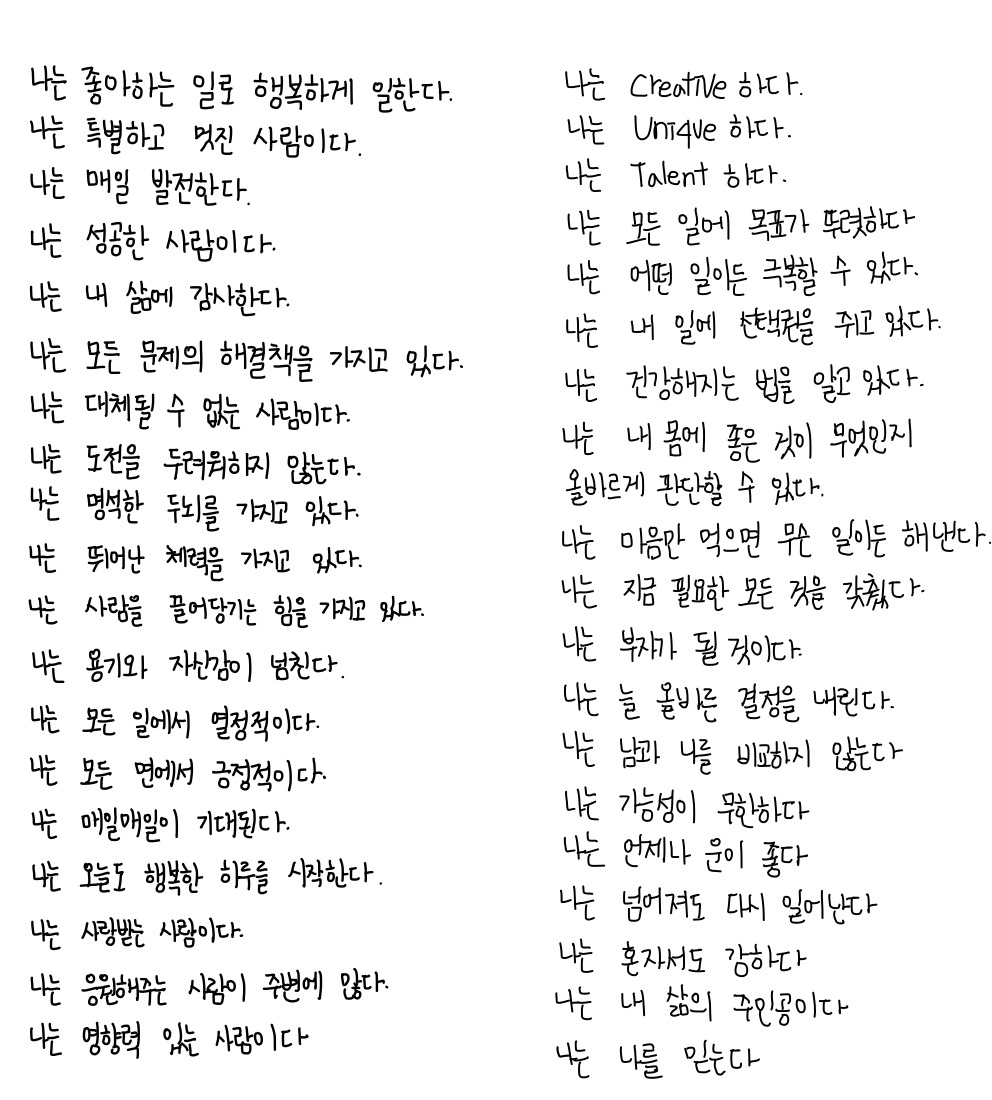 나는 좋아하는 일로 행복하게 일한다.
나는 특별하고 멋진 사람이다.
나는 매일 발전한다.
나는 성공한 사람이다.
나는 내 삶에 감사한다.
나는 모든 문제의 해결책을 가지고 있다.
나는 대체될 수 없는 사람이다.
나는 도전을 두려워하지 않는다.
나는 명석한 두뇌를 가지고 있다.
나는 뛰어난 체력을 가지고 있다.
나는 사람을 끌어당기는 힘을 가지고 있다.
나는 용기와 자신감이 넘친다.
나는 모든 일에서 열정적이다.
나는 모든 면에서 긍정적이다.
나는 매일매일이 기대된다.
나는 오늘도 행복한 하루를 시작한다.
나는 사랑받는 사람이다.
나는 응원해주는 사람이 주변에 많다.
나는 영향력 있는 사람이다
나는 Creative 하다.
나는 Unique 하다.
나는 Talent 하다.
나는 모든 일에 목표가 뚜렷하다
나는 어떤 일이든 극복할 수 있다.
나는 내 일에 선택권을 쥐고 있다.
나는 건강해지는 법을 알고 있다.
나는 내 몸에 좋은 것이 무엇인지
올바르게 판단할 수 있다.
나는 마음만 먹으면 무슨 일이든 해낸다.
나는 지금 필요한 모든 것을 갖췄다.
나는 부자가 될 것이다.
나는 늘 올바른 결정을 내린다.
나는 남과 나를 비교하지 않는다
나는 가능성이 무한하다
나는 언제나 운이 좋다
나는 넘어져도 다시 일어난다
나는 혼자서도 강하다
나는 내 삶의 주인공이다
나는 나를 믿는다